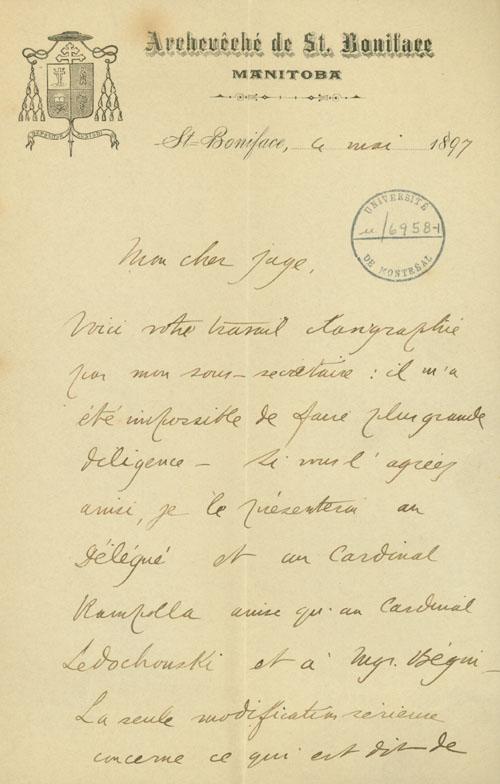 Archevêché de St. Boniface
MANITOBA
St-Boniface, 4 mai 1897
UNIVERSITÉ
DE MONTRÉAL
Mon cher juge,
Voici votre travail
par mon sous-secrétaire : il m'a
été impossible de faire plus grande
diligence - Si vous l'agréez
ainsi, je le présenterai au
Délégué et au Cardinal
Rampolla ainsi qu'au Cardinal
Ledochowski et à Mgr. Bégin -
La seule modification sérieuse
concerne ce qui est dit de